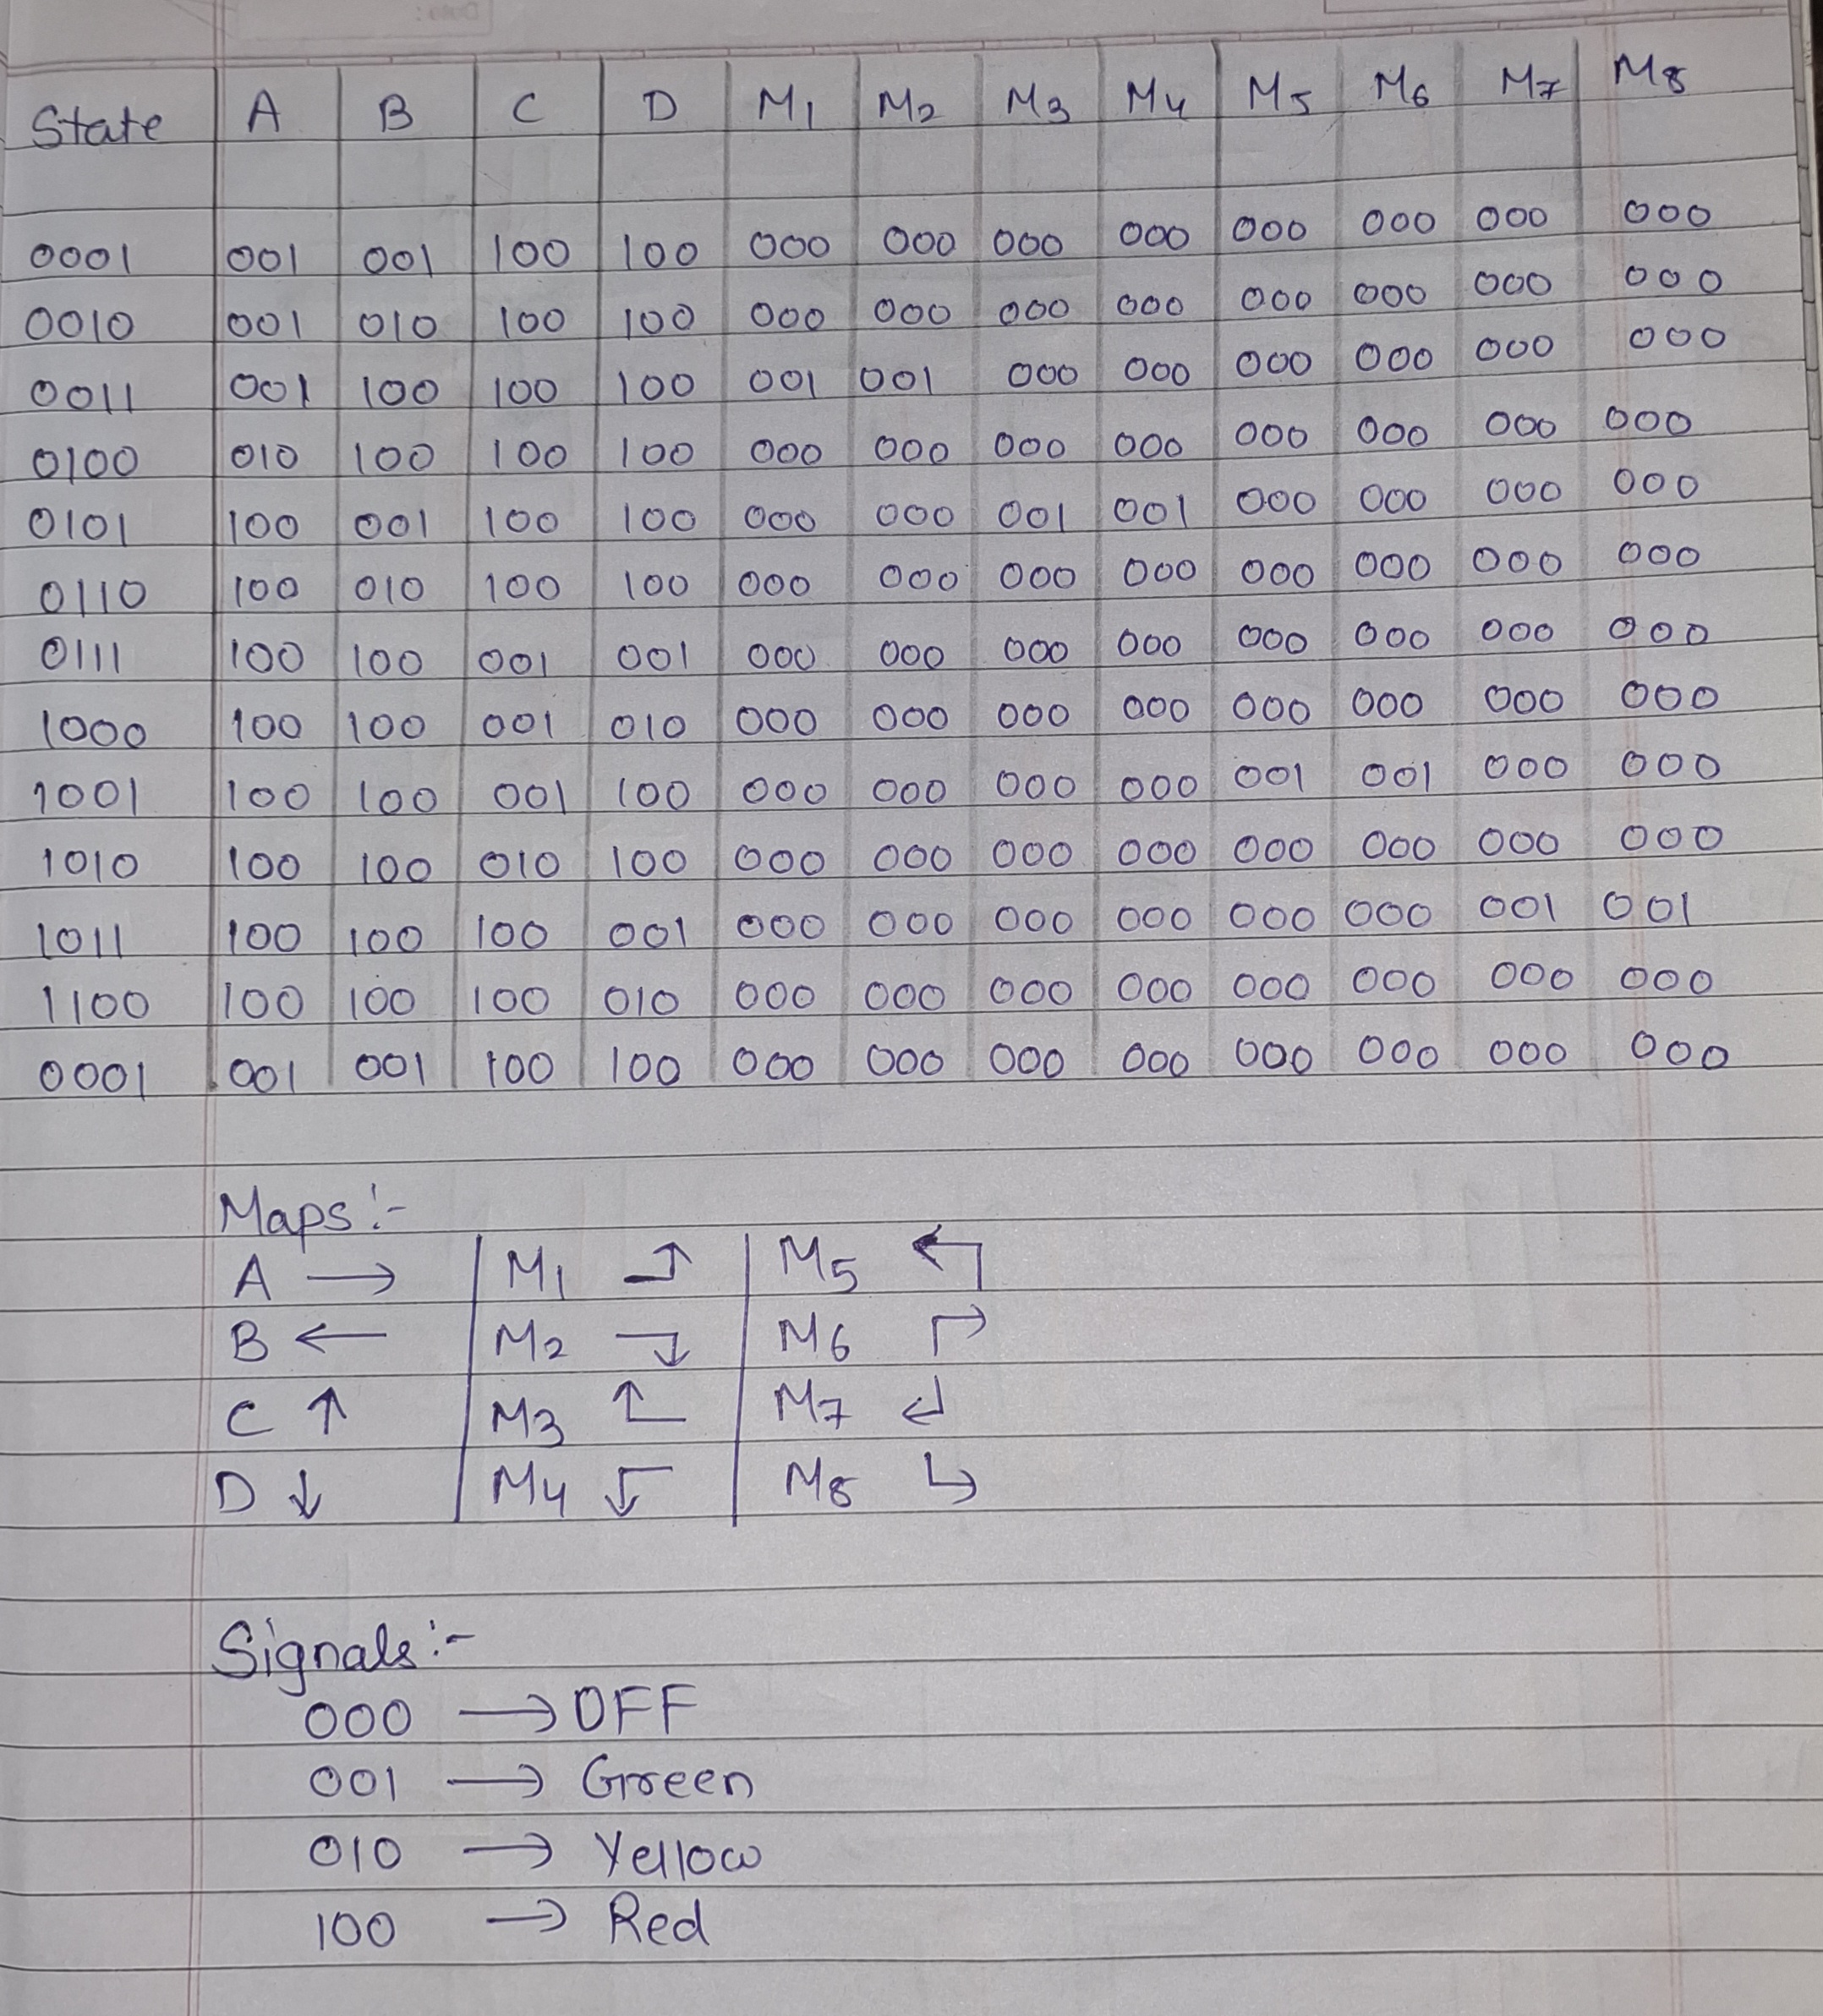 State A B C D M1 M2 M3 M4 M5 M6 M7 M8
0001 001 001 100 100 000 000 000 000 000 000 000 000
0010 001 010 100 100 000 000 000 000 000 000 000 000
0011 001 100 100 100 001 001 000 000 000 000 000 000
0100 010 100 100 100 000 000 000 000 000 000 000 000
0101 100 001 100 100 000 000 001 001 000 000 000 000
0110 100 010 100 100 000 000 000 000 000 000 000 000
0111 100 100 001 001 000 000 000 000 000 000 000 000
1000 100 100 001 010 000 000 000 000 000 000 000 000
1001 100 100 001 100 000 000 000 000 001 001 000 000
1010 100 100 010 100 000 000 000 000 000 000 000 000
1011 100 100 100 001 000 000 000 000 000 000 001 001
1100 100 100 100 010 000 000 000 000 000 000 000 000
0001 001 001 100 100 000 000 000 000 000 000 000 000
Maps:-
A → M1 ⮥ M5 ↰
B ← M2 ⮧ M6 ↱
C ↑ M3 ⮤ M7 ↲
D ↓ M4 ⮦ M8 ↳
Signals:-
000 → OFF
001 → Green
010 → Yellow
100 → Red